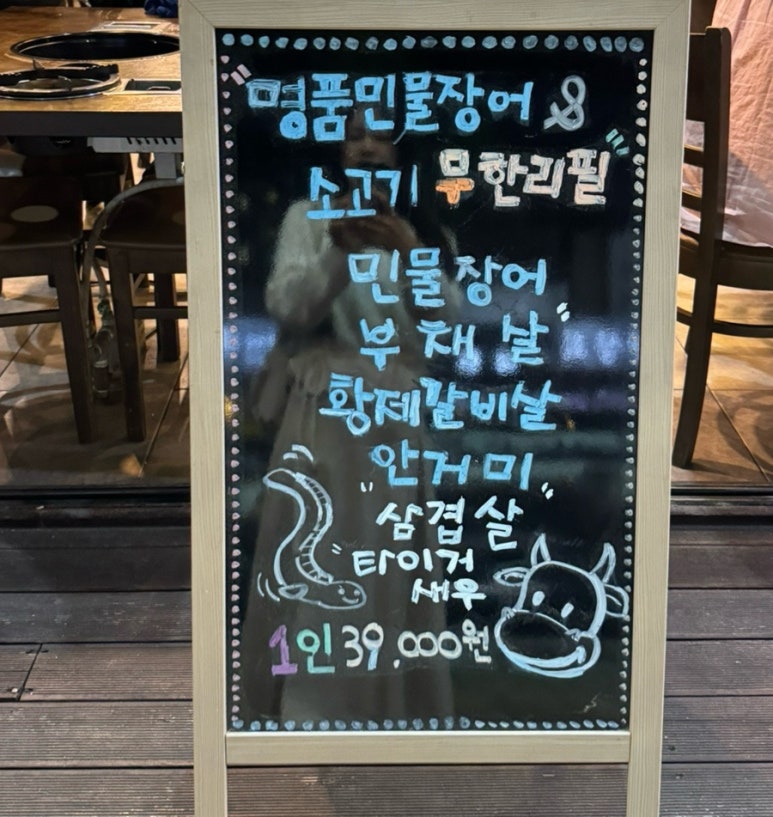 "명품민물장어 &
소고기 무한리필"
민물장어
부채살"
황제갈비살
안거미
"삼겹살"
"타이거
새우
1인 39,000원